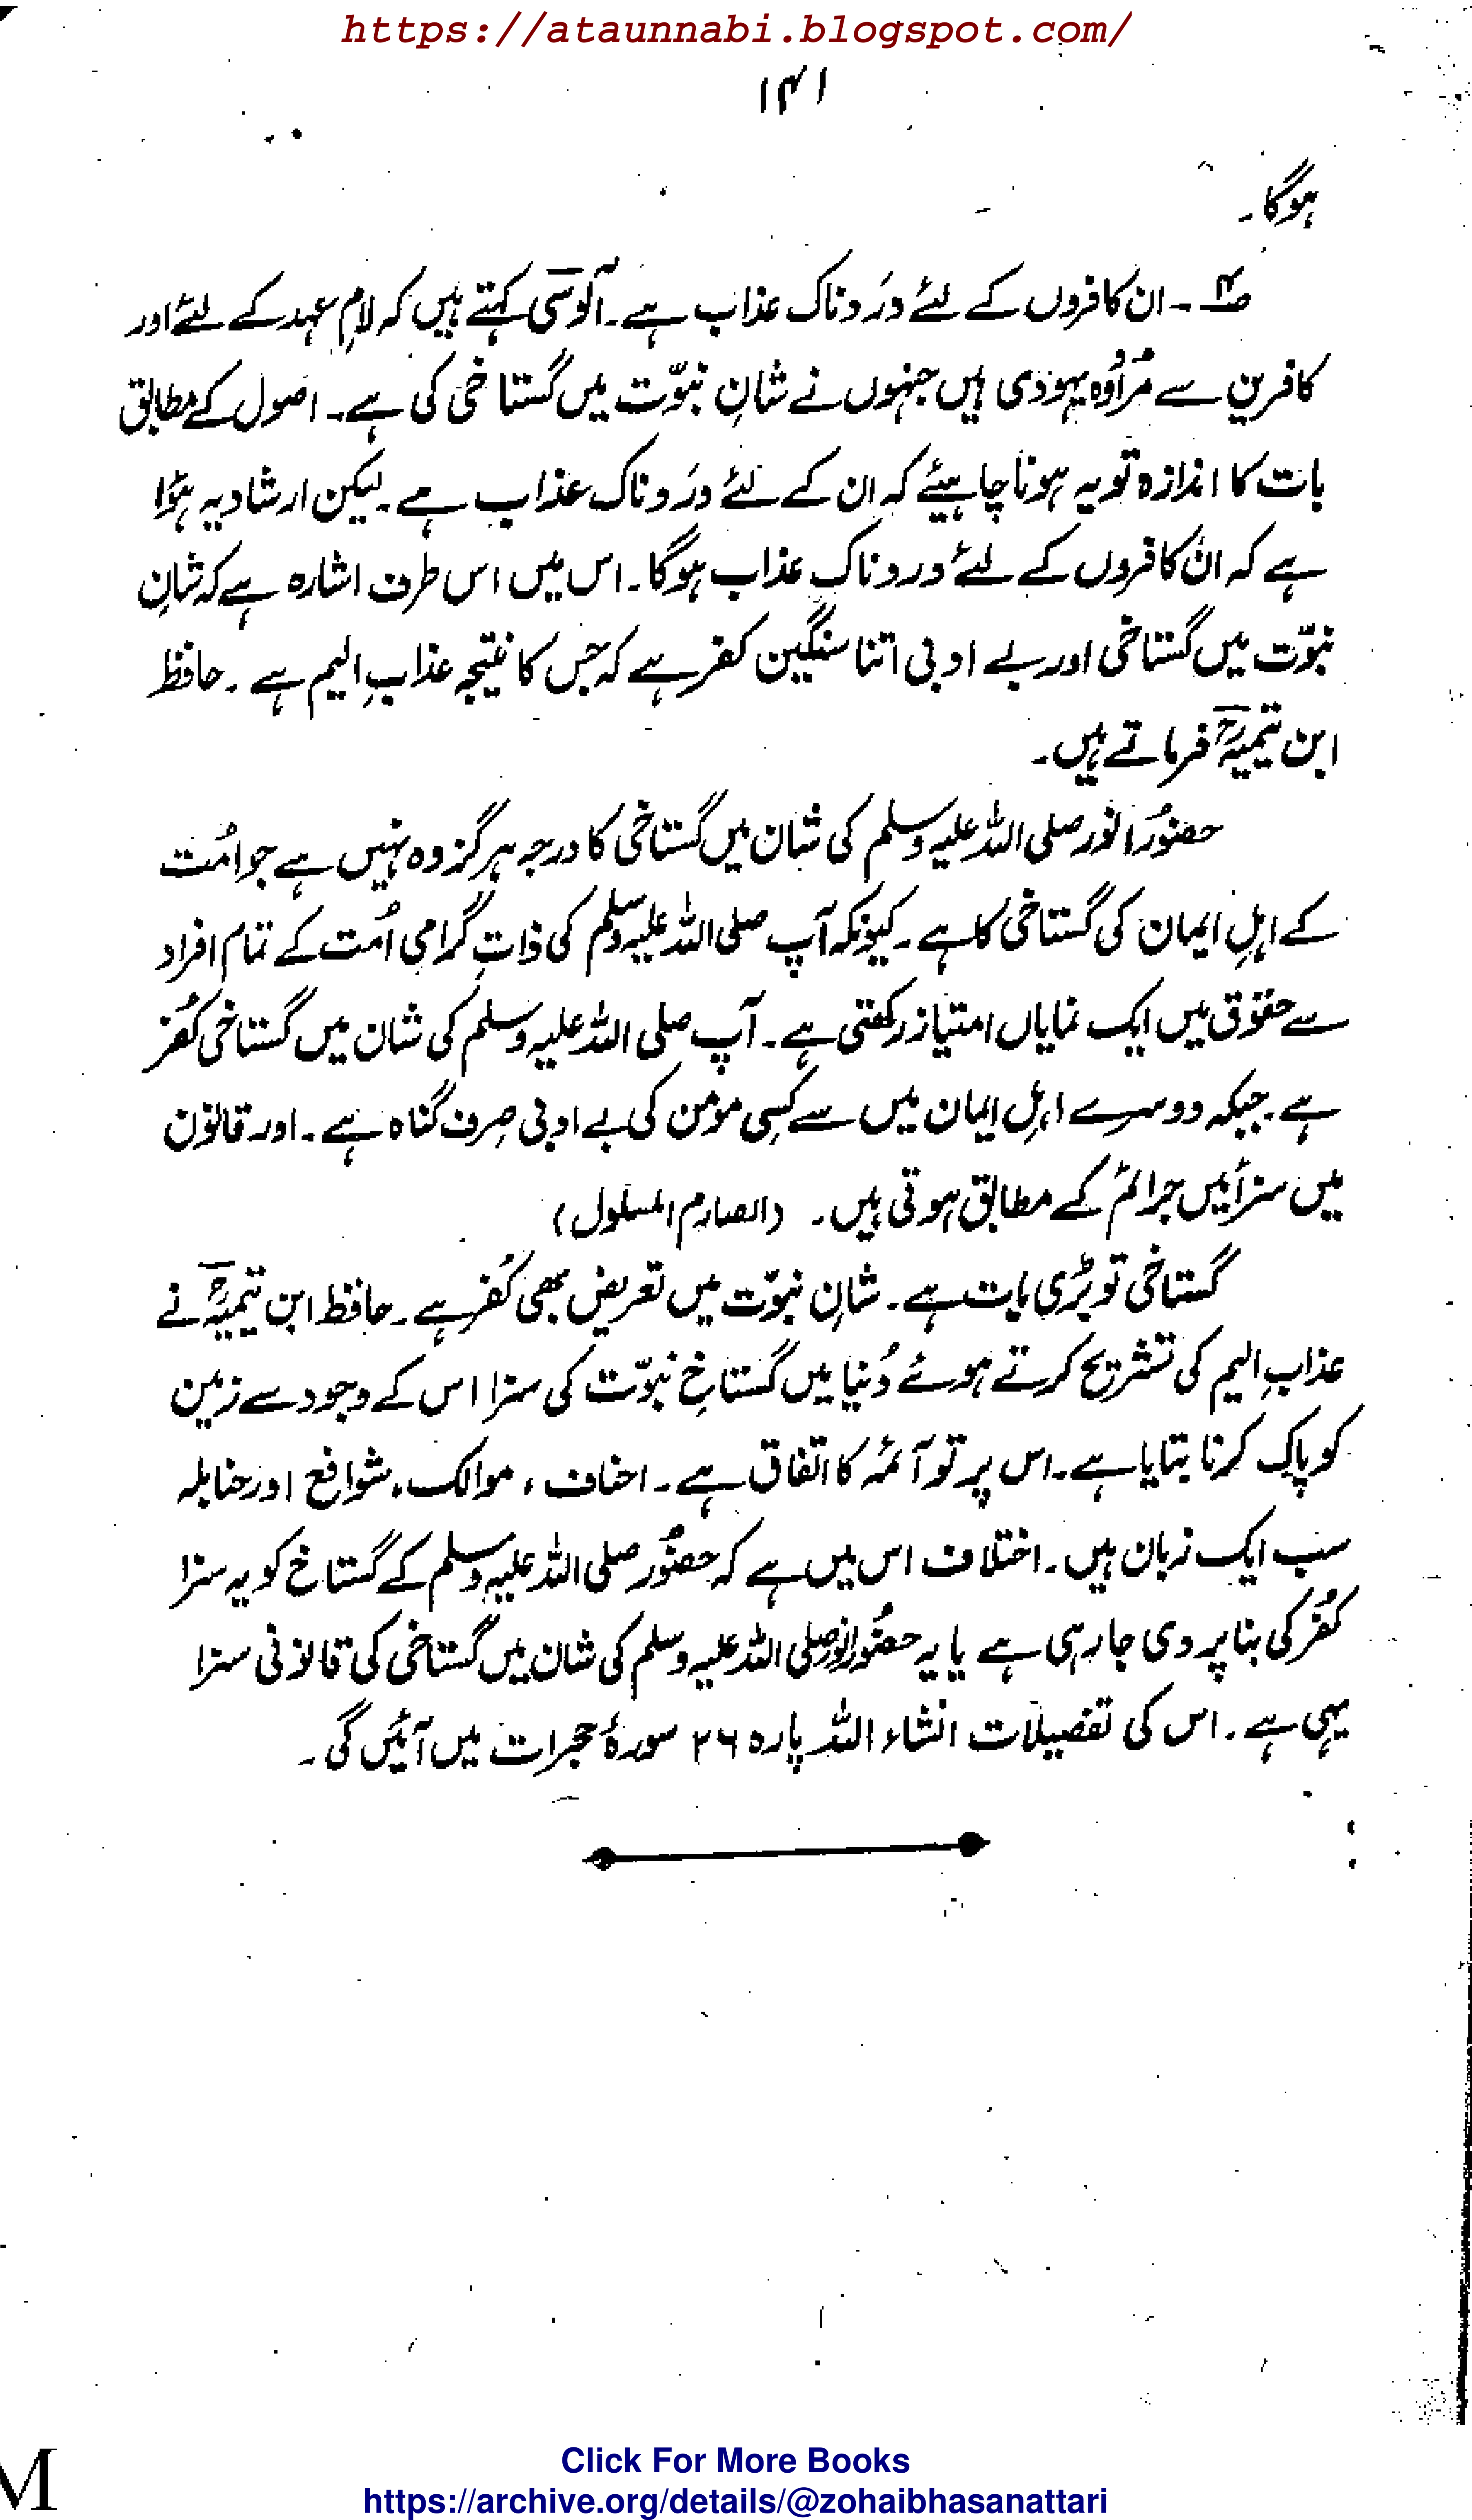 https://ataunnabi.blogspot.com/
۱۴۱
ہوگا۔
۴؎ ۔ ان کافروں کے لئے دَردناک عذاب ہے۔ آلوسیؒ کہتے ہیں کہ لامِ عہد کے لئے اور
کافرین سے مُراد وُہ یہودی ہیں جنہوں نے شانِ نبوّت میں گستاخی کی ہے۔ اصول کے مطابق
بات کا اندازہ تو یہ ہونا چاہیئے کہ ان کے لئے دَردناک عذاب ہے۔ لیکن ارشاد یہ ہؤا
ہے کہ ان کافروں کے لئے دردناک عذاب ہوگا۔ اس میں اس طرف اشارہ ہے کہ شانِ
نبوّت میں گستاخی اور بے ادبی اتنا سنگین کفر ہے کہ جس کا نتیجہ عذابِ الیم ہے۔ حافظ
ابن تیمیہؒ فرماتے ہیں۔
حضورُ انور صلی اللہ علیہ وسلم کی شان میں گستاخی کا درجہ ہرگز وہ نہیں ہے جو اُمت
کے اہلِ ایمان کی گستاخی کا ہے۔ کیونکہ آپ صلی اللہ علیہ وسلم کی ذاتِ گرامی اُمت کے تمام افراد
سے حقوق میں ایک نمایاں امتیاز رکھتی ہے۔ آپ صلی اللہ علیہ وسلم کی شان میں گستاخی کُفر
ہے جبکہ دوسرے اہلِ ایمان میں سے کسی مومن کی بے ادبی صِرف گناہ ہے۔ اور قانون
میں سزائیں جرائم کے مطابق ہوتی ہیں۔ (الصارم المسلول)
گستاخی تو بڑی بات ہے۔ شانِ نبوّت میں تعریض بھی کُفر ہے۔ حافظ ابن تیمیہؒ نے
عذابِ الیم کی تشریح کرتے ہوئے دُنیا میں گستاخِ نبوّت کی سزا اس کے وجود سے زمین
کو پاک کرنا بتایا ہے۔ اس پر تو آئمہ کا اتفاق ہے۔ احناف، موالک، شوافع اور حنابلہ
سب ایک زبان ہیں۔ اختلاف اس میں ہے کہ حضورؐ صلی اللہ علیہ وسلم کے گستاخ کو یہ سزا
کُفر کی بنا پر دی جا رہی ہے یا یہ حضُور انور صلی اللہ علیہ وسلم کی شان میں گستاخی کی قانونی سزا
یہی ہے۔ اس کی تفصیلات انشاء اللہ پارہ ۲۶ سورۂ حجرات میں آئیں گی۔
M
Click For More Books
https://archive.org/details/@zohaibhasanattari